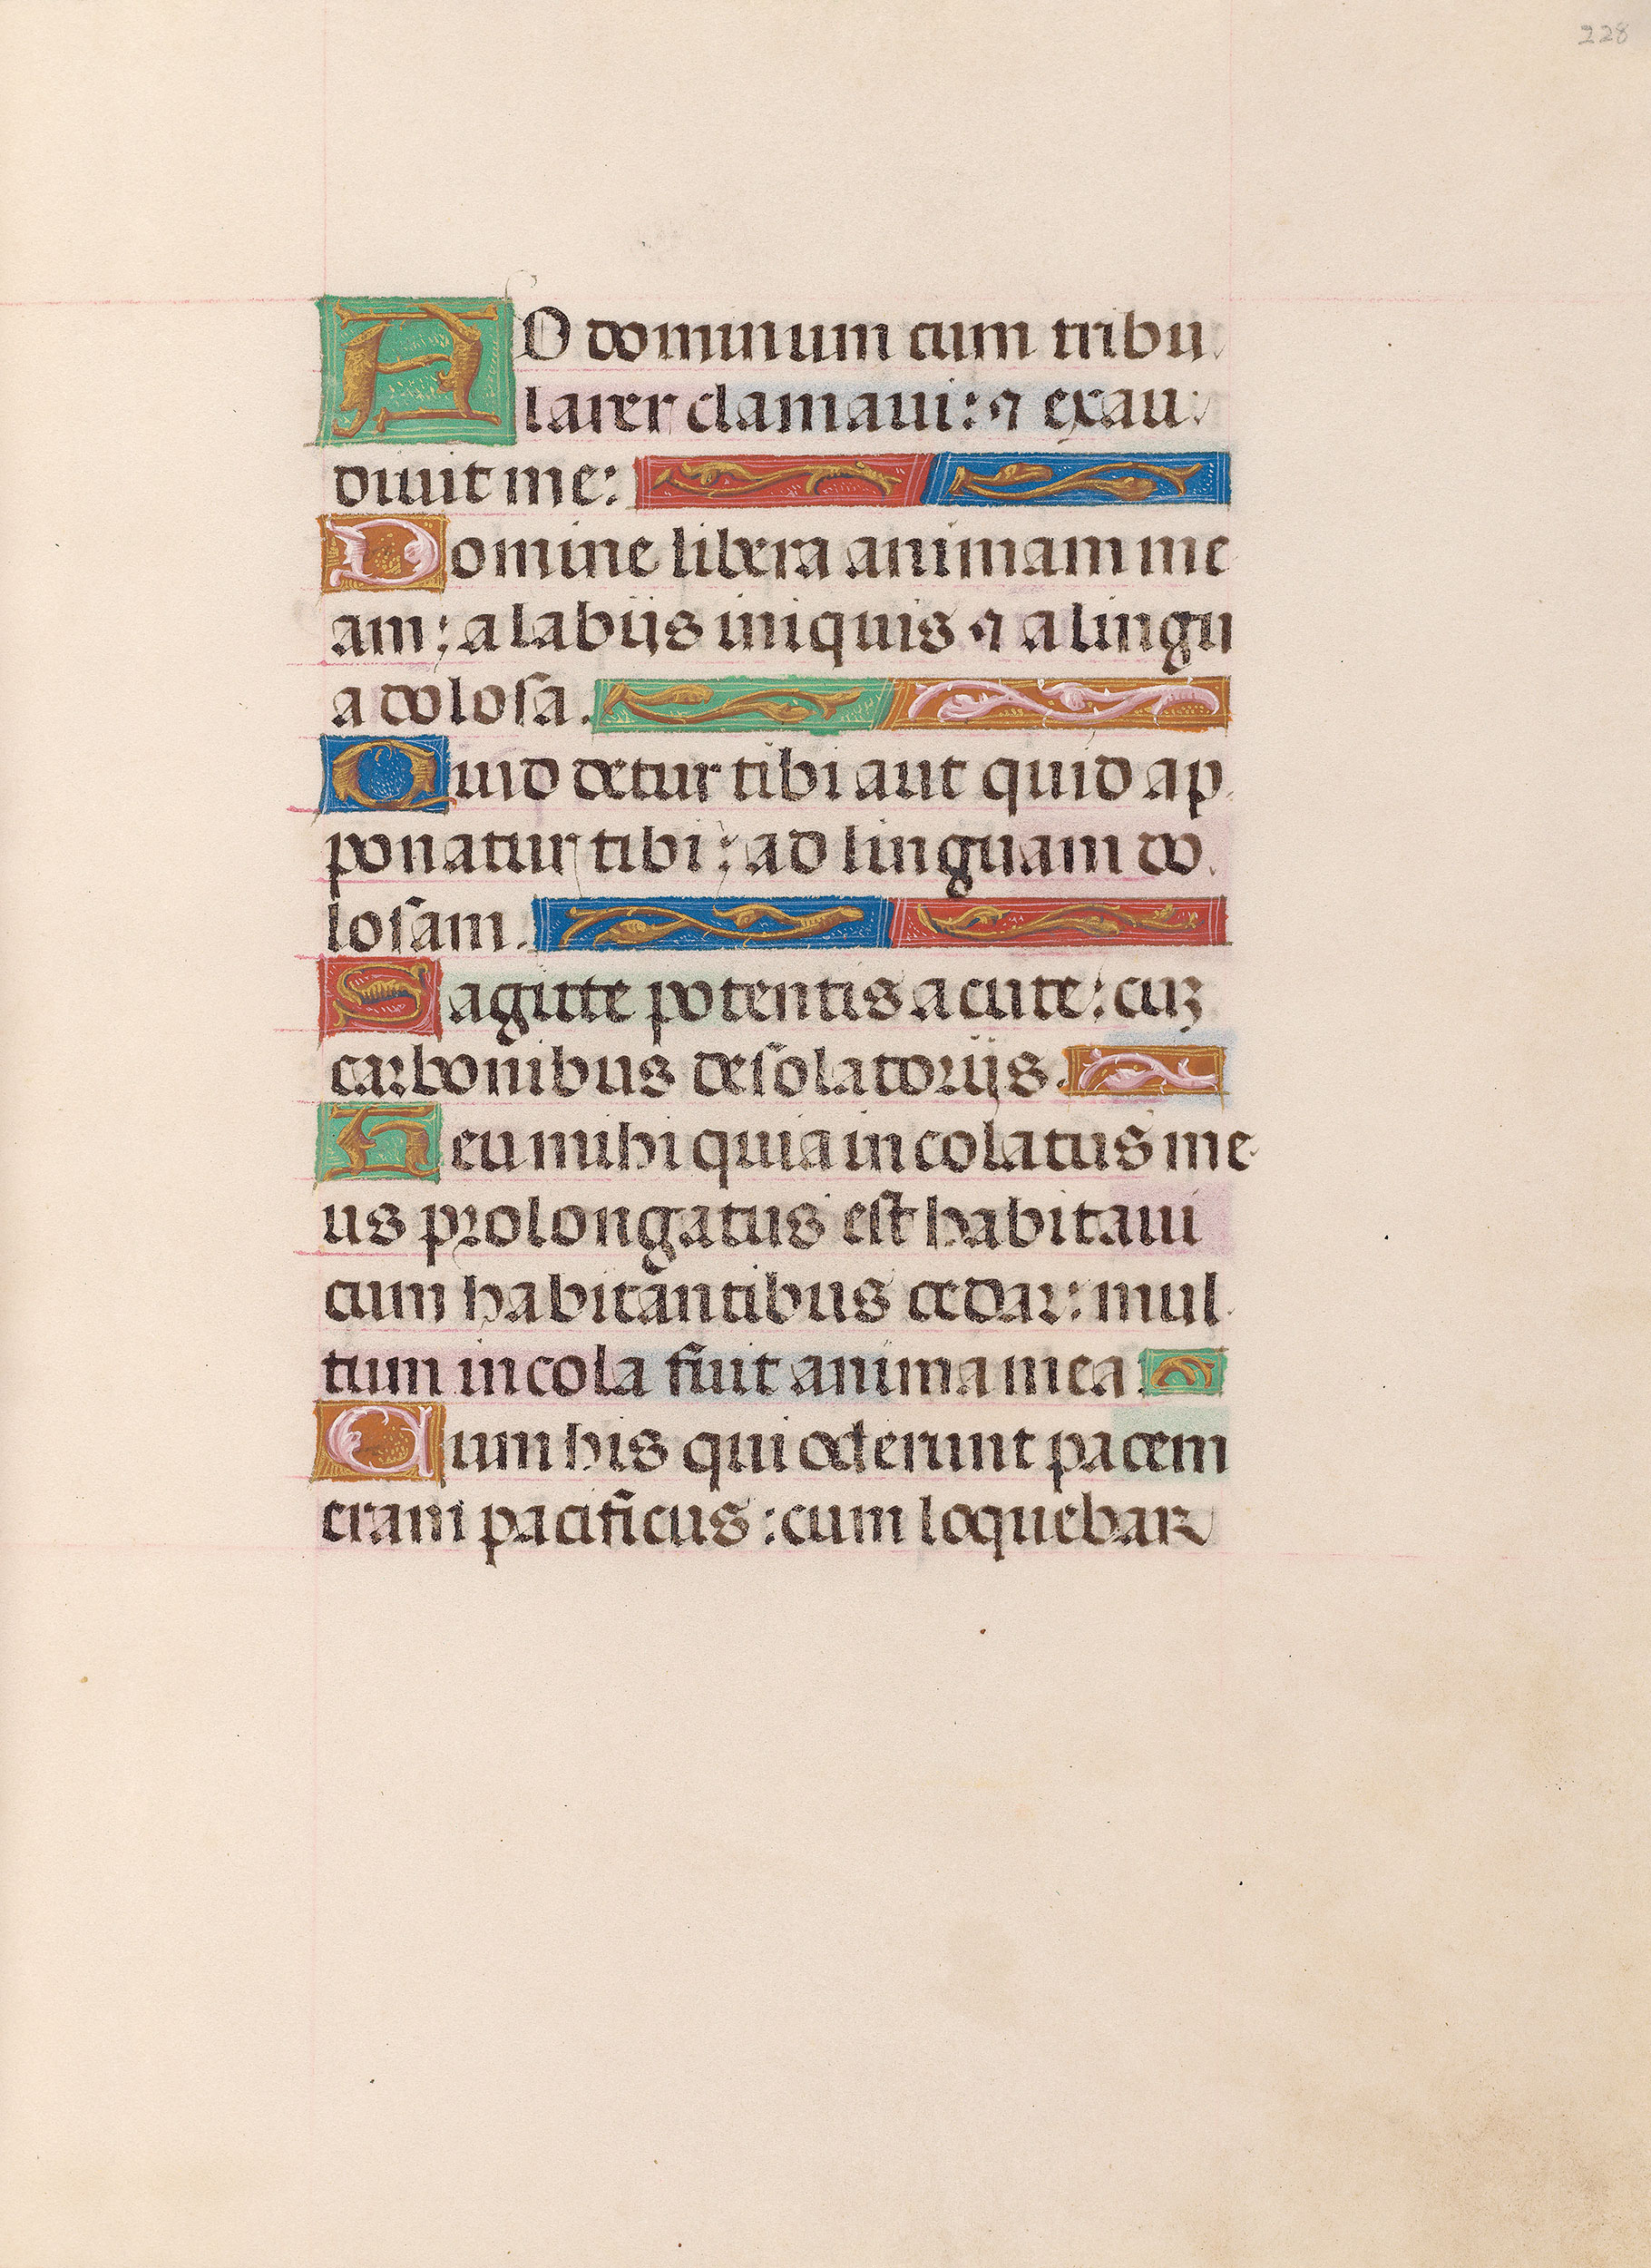 228
AD dominum cum tribu
larer clamaui: ⁊ exau
diuit me:
Domine libera animam me
am: a labijs iniquis ⁊ a lingu
a dolosa.
Quid detur tibi aut quid ap
ponatur tibi: ad linguam do
losam.
Sagitte potentis acute: cuꝫ
carbonibus desolatorijs.
Heu mihi quia incolatus me
us prolongatus est habitaui
cum habitantibus cedar: mul
tum incola fuit anima mea:
Cum his qui oderunt pacem
eram pacificus: cum loquebar